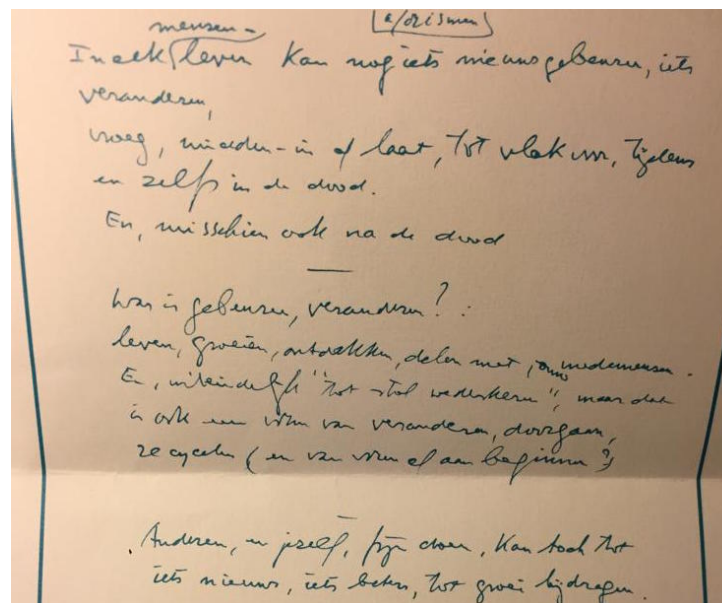 mensen-
[aforismen]
In elk leven kan nog iets nieuws gebeuren, iets
veranderen,
vroeg, midden-in of laat, tot vlak voor, tijdens
en zelfs in de dood.
En, misschien ook na de dood
—
Wat is gebeuren, veranderen? :
leven, groeien, ontdekken, delen met, onze medemensen.
En, uiteindelijk "tot stof wederkeren", maar dat
is ook een vorm van veranderen, doorgaan,
recyclen (en van voren af aan beginnen?)
Anderen, en jezelf, fijn doen, kan toch tot
iets nieuws, iets beters, tot groei bijdragen.